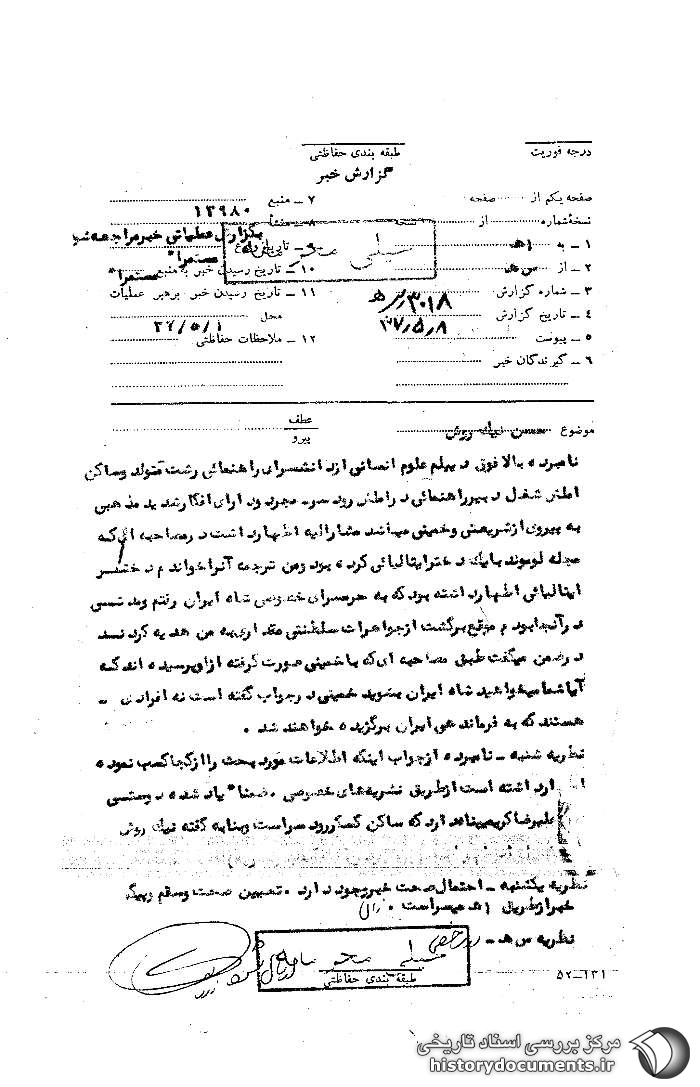 درجه فوریت
طبقه بندی حفاظتی
گزارش خبر
صفحه یکم از صفحه
۷ ــ منبع ۱۳۹۸۰
نسخه شماره از نسخه
۸ ــ منشأ
۱ ــ به
۹ ــ تاریخ وقوع
خیلی محرمانه
۲ ــ از س هـ
۱۰ ــ تاریخ رسیدن خبر به منبع مستمرا"
۳ ــ شماره گزارش
۱۱ ــ تاریخ رسیدن خبر برهبر عملیات
۴ ــ تاریخ گزارش ۳۷٫۵٫۸
محل
۵ ــ پیوست
۱۲ ــ ملاحظات حفاظتی
۶ ــ گیرندگان خبر
موضوع
عطف
پیرو
نامبرده بالا فوق دیپلم علوم انسانی از دانشسرای راهنمائی رشت متولد و ساکن
املش شغل دبیر راهنمائی در املش رودسر مجرد دارای افکار شدید مذهبی
به پیروی از شریعتی و خمینی میباشد مشارالیه اظهار داشت در مصاحبه ای که
مجله لوموند با یک دختر ایتالیائی کرده بود و من ترجمه آنرا خواندم دختر
ایتالیائی اظهار داشته بود که به حرمسرای خصوصی شاه ایران رفتم و مدتی
در آنجا بودم موقع برگشت از جواهرات سلطنتی مقداری به من هدیه کردند
در ضمن میگفت طبق مصاحبه ای که با خمینی صورت گرفته از او پرسیده اند که
آیا شما میخواهید شاه ایران بشوید خمینی در جواب گفته است نه افرادی ــ
هستند که به فرماندهی ایران برگزیده خواهند شد .
نظریه شنبه ــ نامبرده از جواب اینکه اطلاعات مورد بحث را از کجا کسب نموده
داشته است از طریق نشریه های خصوصی . ضمنا" یاد شده دوستی
علیرضا کریمی نام دارد که ساکن رودسر است و بنا به گفته نیک روش
نظریه یکشنبه ــ احتمال صحت خبر وجود دارد . تعیین صحت و سقم
خبر از طریق میسر است .
نظریه س هـ ــ
خیلی محرمانه
طبقه بندی حفاظتی
۵۲ــ۱۳۱
مرکز بررسی اسناد تاریخی
historydocuments.ir